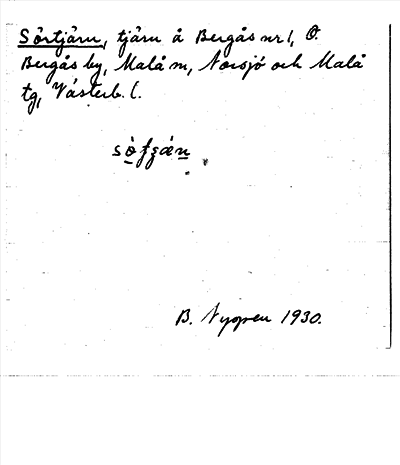 Sörtjärn, tjärn å Bergås nr 1, Ö.
Bergås by, Malå sn, Norsjö och Malå
tg, Västerb. l.
B. Nygren 1930.